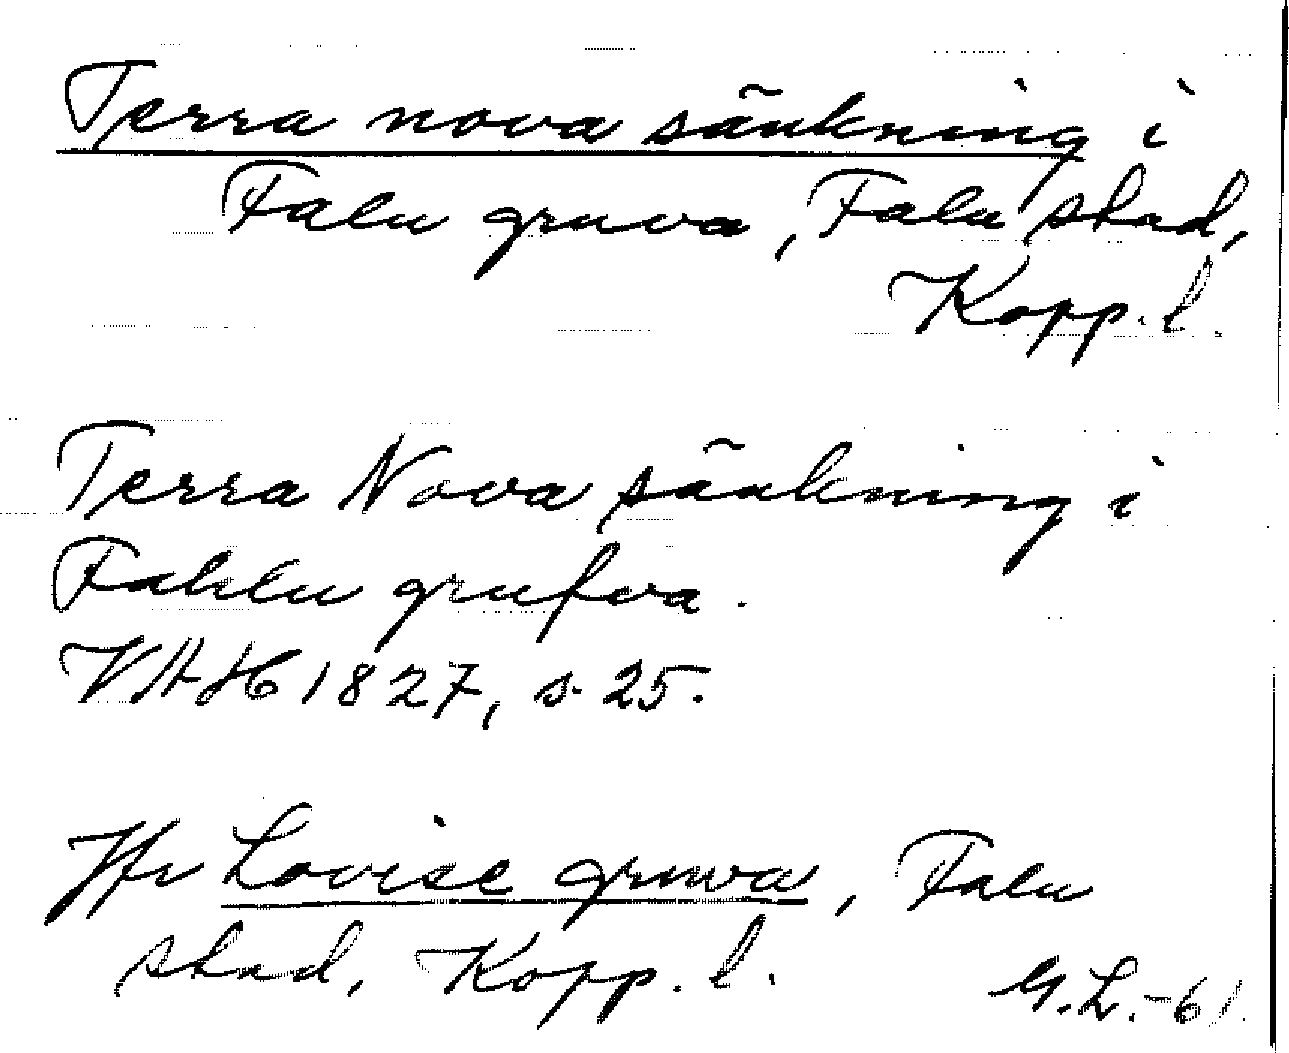 Terra nova sänkning i
Falu gruva, Falu stad,
Kopp. l.
Terra Nova sänkning i
Fahlu grufva.
VAH 1827, s. 25.
Jfr Lovise gruva, Falu
stad, Kopp. l.
G.L.-61.